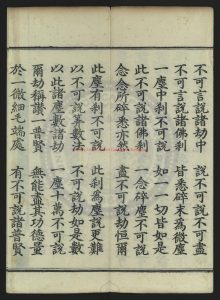 不可言說諸劫中 說不可說不可盡
不可言說諸佛刹 皆悉碎末為微塵
一塵中刹不可說 如一一切皆如是
此不可說諸佛刹 一念碎塵不可說
念念所碎悉亦然 盡不可說劫恒爾
此塵有刹不可說 此刹為塵說更難
以不可說算數法 不可說劫如是數
以此諸塵數諸劫 一塵十萬不可說
爾劫稱讚一普賢 無能盡其功德量
於一微細毛端處 有不可說諸普賢